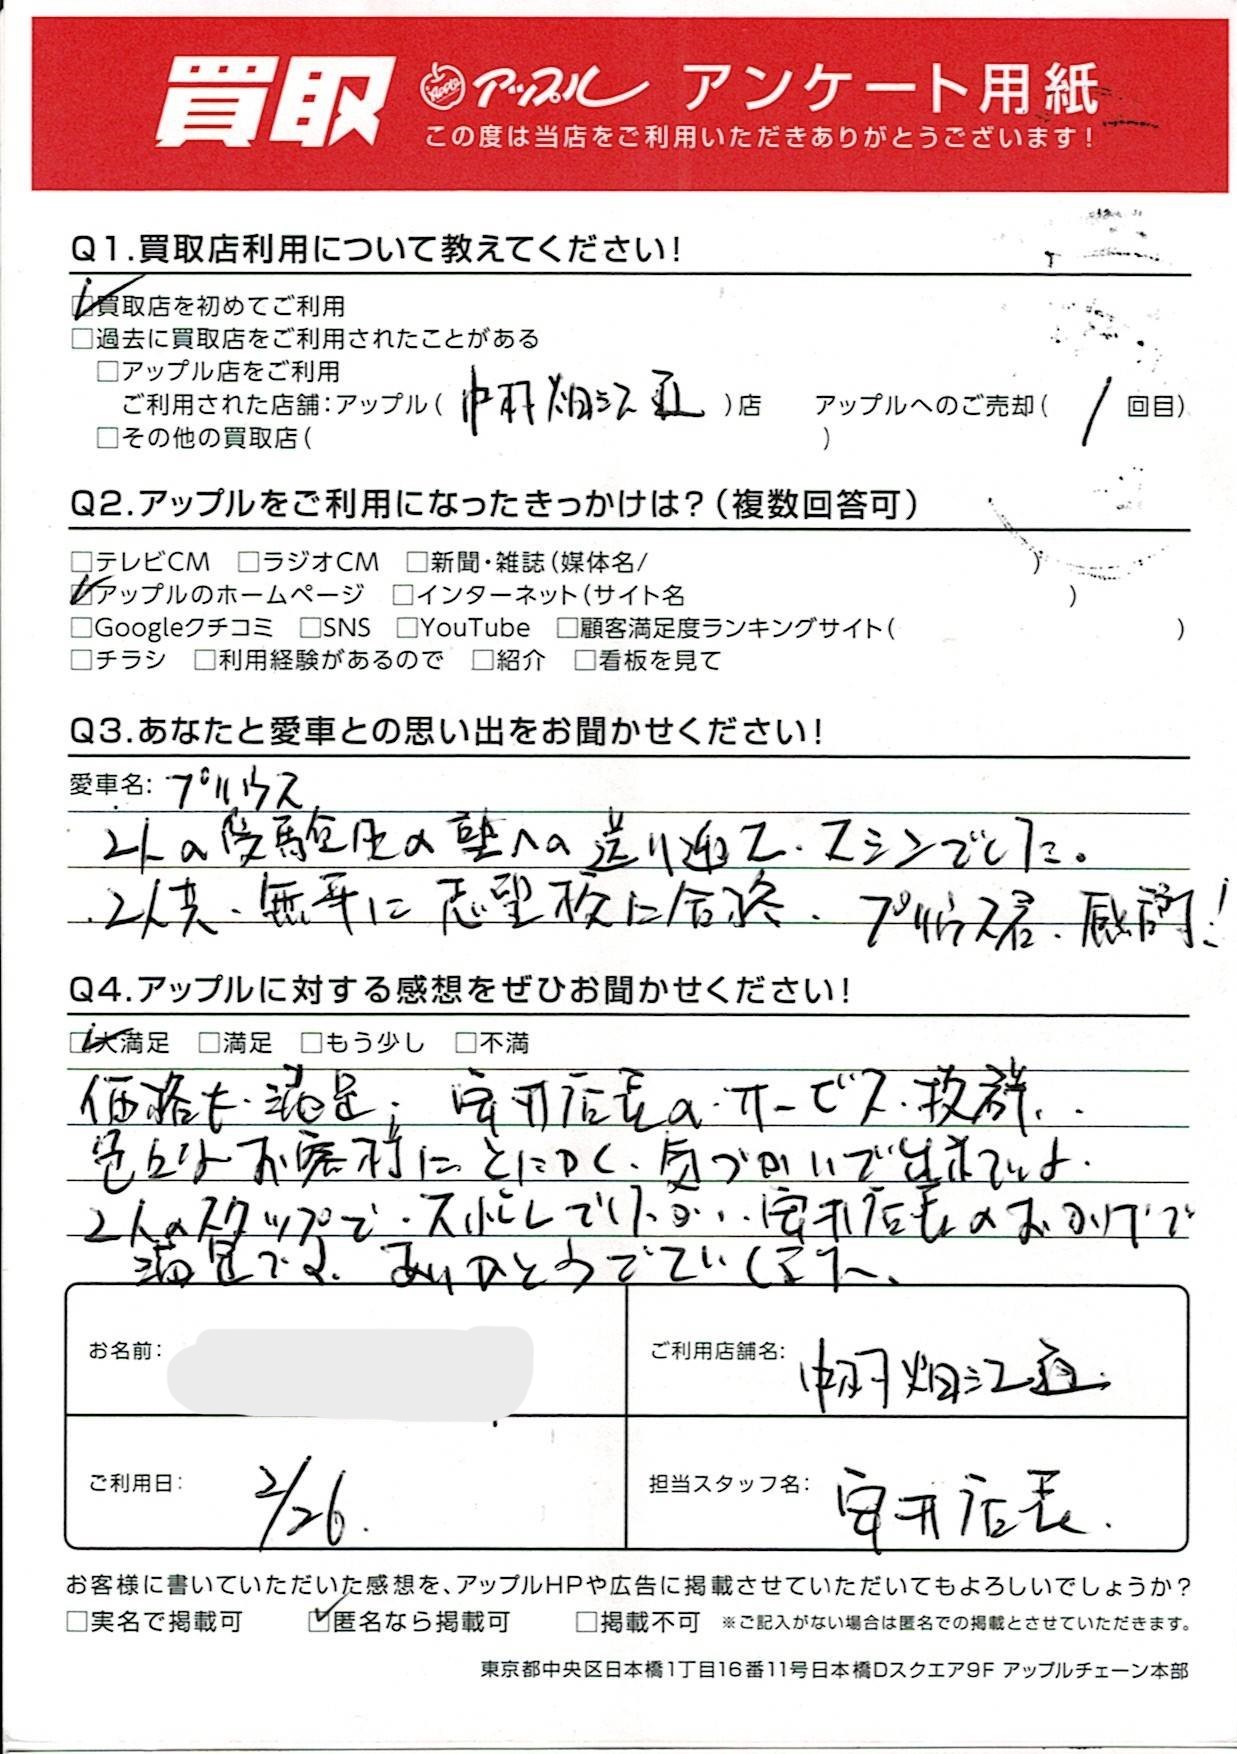 買取 Apple アップル アンケート用紙
この度は当店をご利用いただきありがとうございます!
Q1.買取店利用について教えてください!
☑買取店を初めてご利用
□過去に買取店をご利用されたことがある
□アップル店をご利用
ご利用された店舗:アップル( 幕張 )店 アップルへのご売却( 1 回目)
□その他の買取店( )
Q2.アップルをご利用になったきっかけは?(複数回答可)
□テレビCM □ラジオCM □新聞・雑誌(媒体名/ )
☑アップルのホームページ □インターネット(サイト名 )
□Googleクチコミ □SNS □YouTube □顧客満足度ランキングサイト( )
□チラシ □利用経験があるので □紹介 □看板を見て
Q3.あなたと愛車との思い出をお聞かせください!
愛車名: プリウス
2人の受験生の塾への送り迎え.マシンでした。
2人共.無事に志望校に合格. プリウス君.感謝!
Q4.アップルに対する感想をぜひお聞かせください!
☑大満足 □満足 □もう少し □不満
価格も満足. 店長のサービス.抜群.
色々なお客様にとにかく.気づかいで
2人のスタッフで.大忙しでしたが..店長のおかげで
満足です.ありがとうございました.
お名前:
ご利用店舗名:
ご利用日: 2/26.
担当スタッフ名: 店長.
お客様に書いていただいた感想を、アップルHPや広告に掲載させていただいてもよろしいでしょうか?
□実名で掲載可 ☑匿名なら掲載可 □掲載不可 ※ご記入がない場合は匿名での掲載とさせていただきます。
東京都中央区日本橋1丁目16番11号日本橋Dスクエア9F アップルチェーン本部